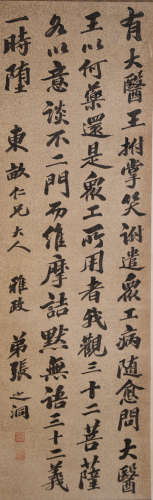 有大醫王拊掌笑謝遣眾工病隨愈問大醫
王以何藥還是眾工所用者我觀三十二菩薩
各以意談不二門而維摩詰默無語三十二義
一時墮
東畝仁兄大人
雅政
弟張之洞